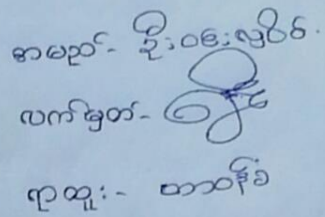 အမည် - ဦးဝဏ္ဏလှဝင်း
လက်မှတ် -
ရာထူး - တာဝန်ခံ